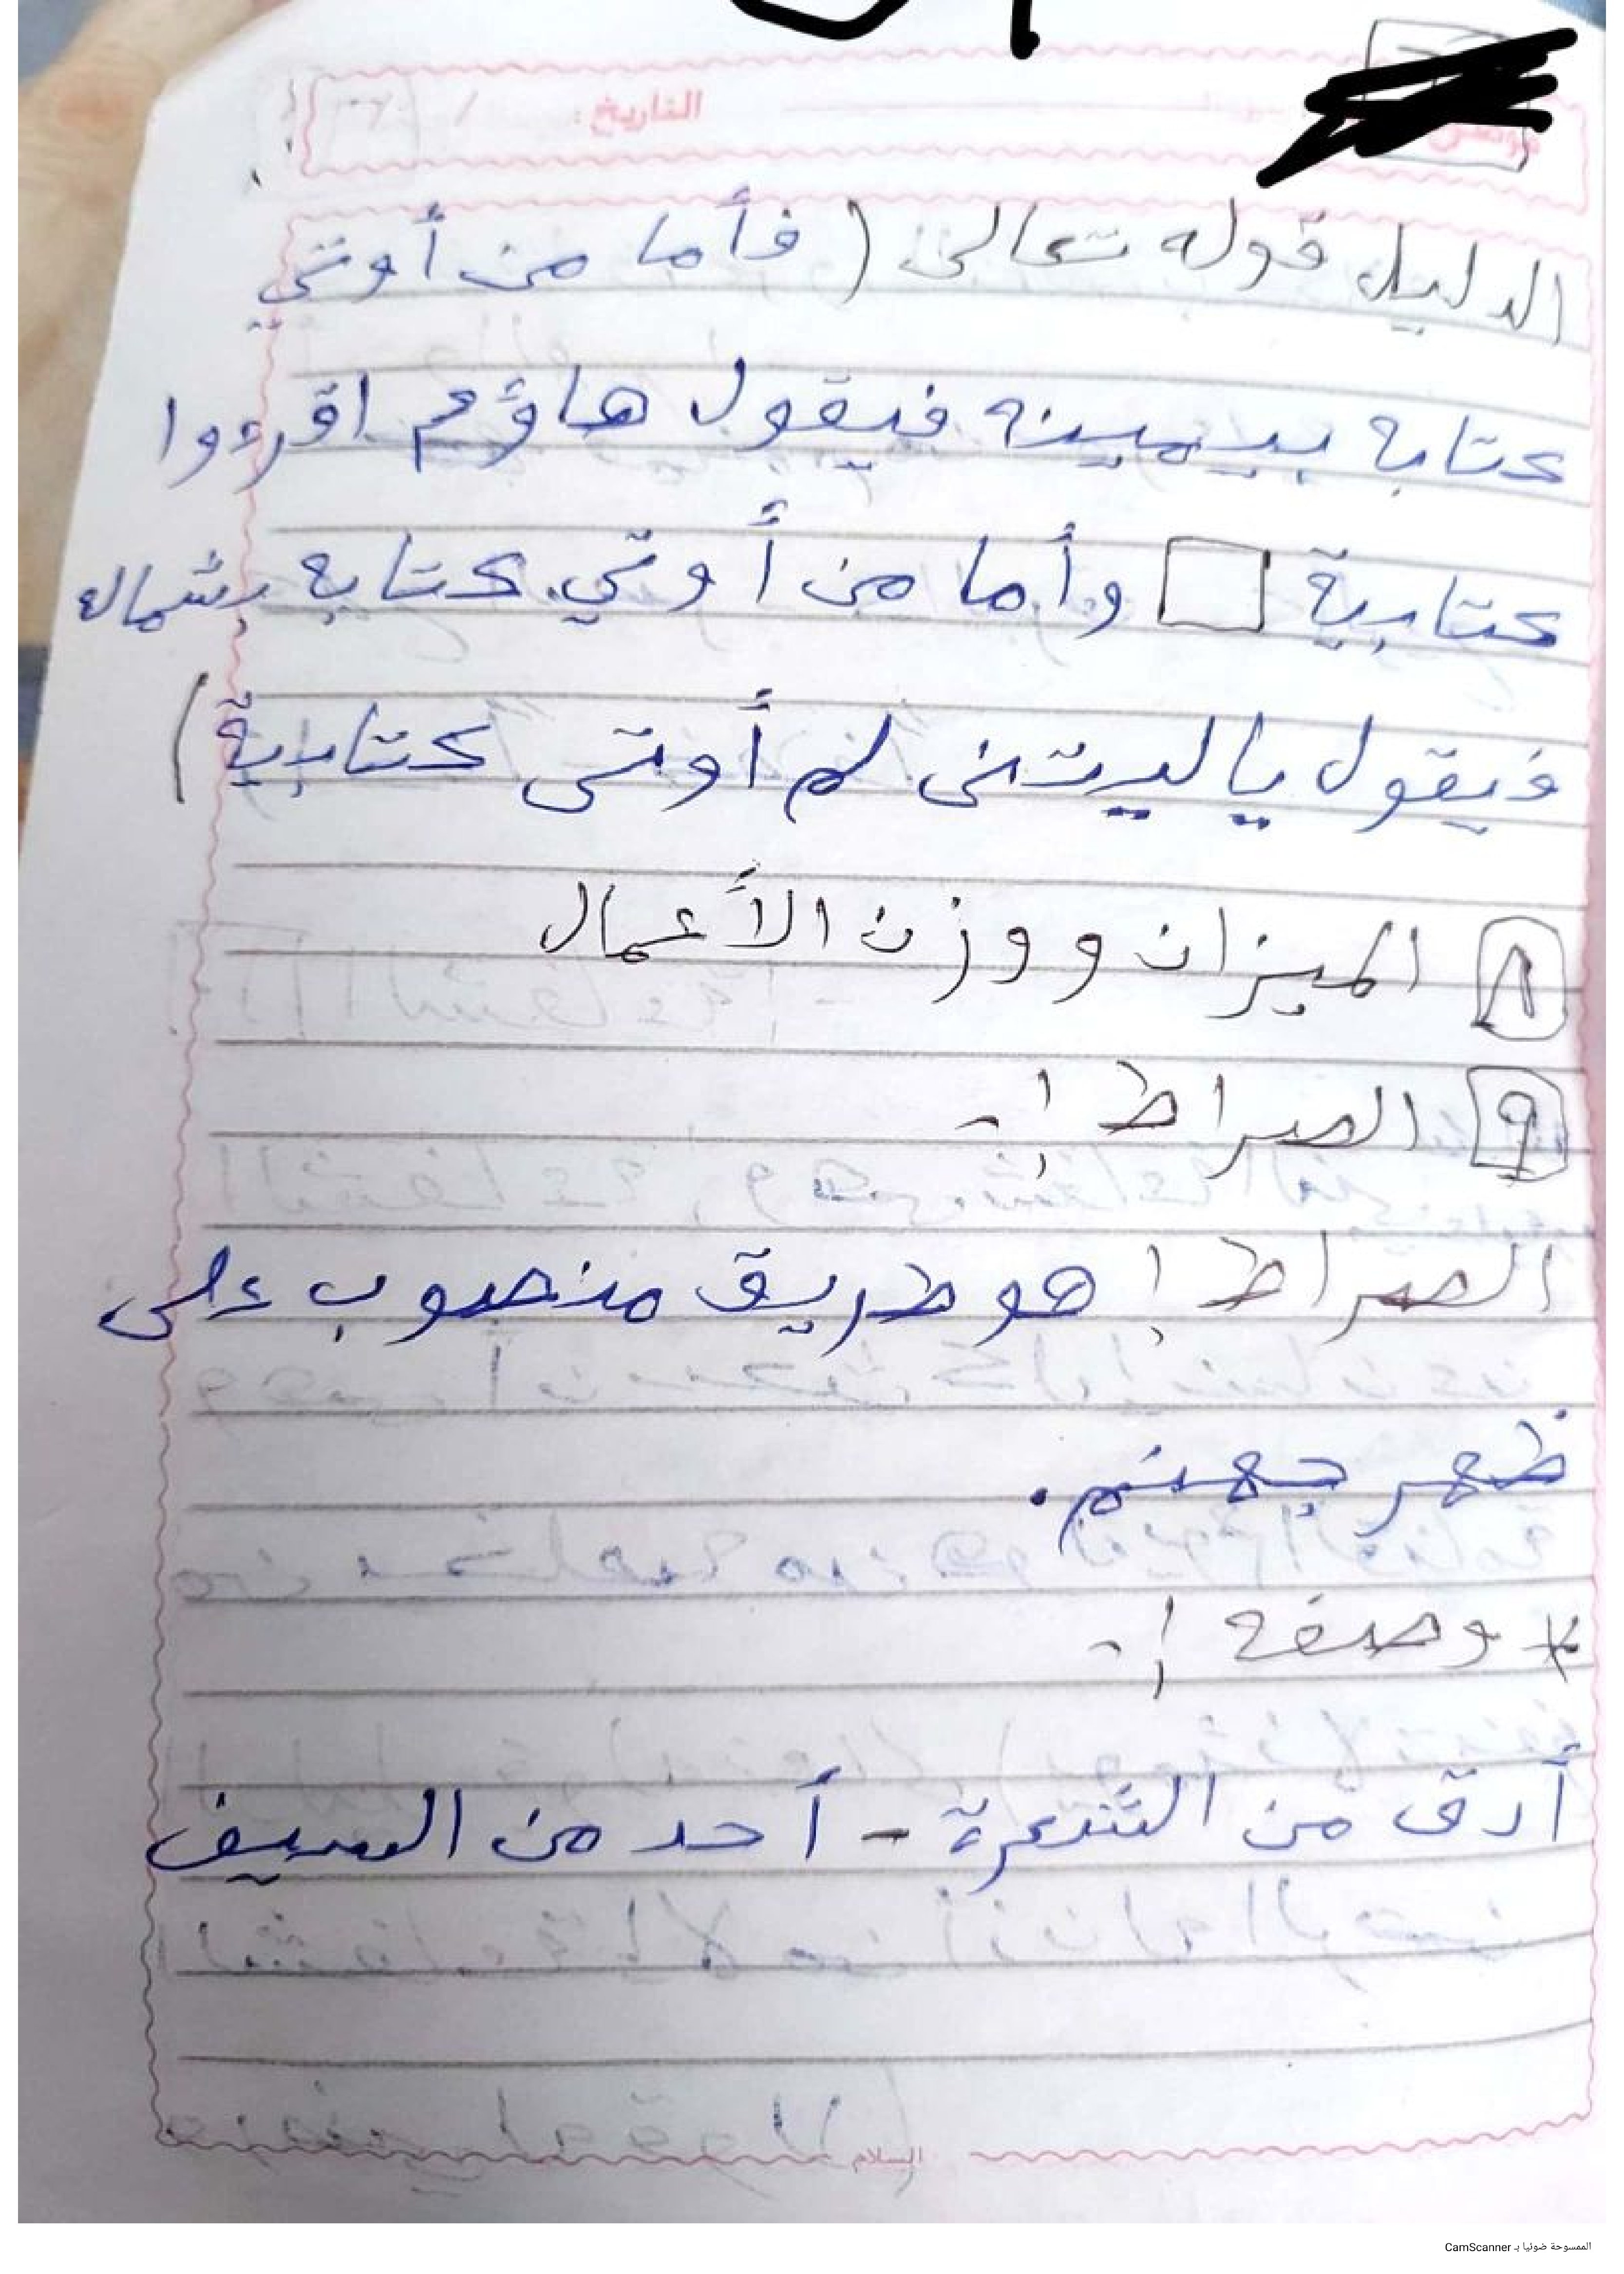 التاريخ: /
الدليل قوله تعالى ( فأما من أوتي
كتابه بيمينه فيقول هاؤم اقرءوا
كتابية □ وأما من أوتي كتابه بشماله
فيقول ياليتني لم أوتى كتابية)
٨ الميزان ووزن الأعمال
٩ الصراط :-
الصراط : هو طريق منصوب على
ظهر جهنم.
* وصفه :-
أدق من الشعرة - أحد من السيف
السلام
الممسوحة ضوئيا بـ CamScanner